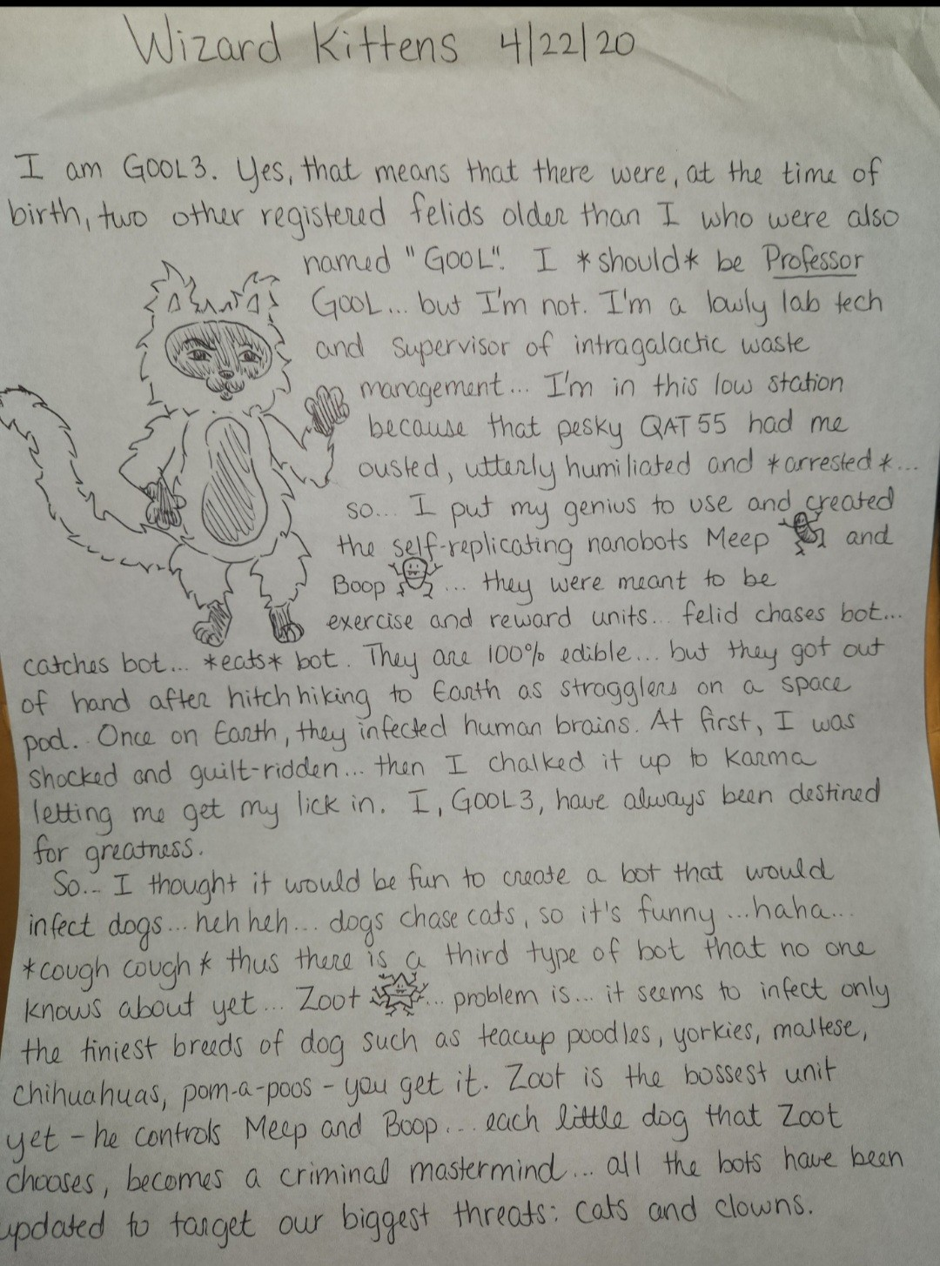 Wizard Kittens 4/22/20
I am GOOL3. Yes, that means that there were, at the time of
birth, two other registered felids older than I who were also
named "GOOL". I *should* be Professor
GOOL... but I'm not. I'm a lowly lab tech
and supervisor of intragalactic waste
management... I'm in this low station
because that pesky QAT55 had me
ousted, utterly humiliated and *arrested*...
so... I put my genius to use and created
the self-replicating nanobots Meep and
Boop ... they were meant to be
exercise and reward units... felid chases bot...
catches bot... *eats* bot. They are 100% edible... but they got out
of hand after hitchhiking to Earth as stragglers on a space
pod. Once on Earth, they infected human brains. At first, I was
shocked and guilt-ridden... then I chalked it up to Karma
letting me get my lick in. I, GOOL3, have always been destined
for greatness.
So... I thought it would be fun to create a bot that would
infect dogs... heh heh... dogs chase cats, so it's funny ...haha...
*cough cough* thus there is a third type of bot that no one
knows about yet... Zoot ... problem is... it seems to infect only
the tiniest breeds of dog such as teacup poodles, yorkies, maltese,
chihuahuas, pom-a-poos - you get it. Zoot is the bossest unit
yet - he controls Meep and Boop... each little dog that Zoot
chooses, becomes a criminal mastermind... all the bots have been
updated to target our biggest threats: cats and clowns.